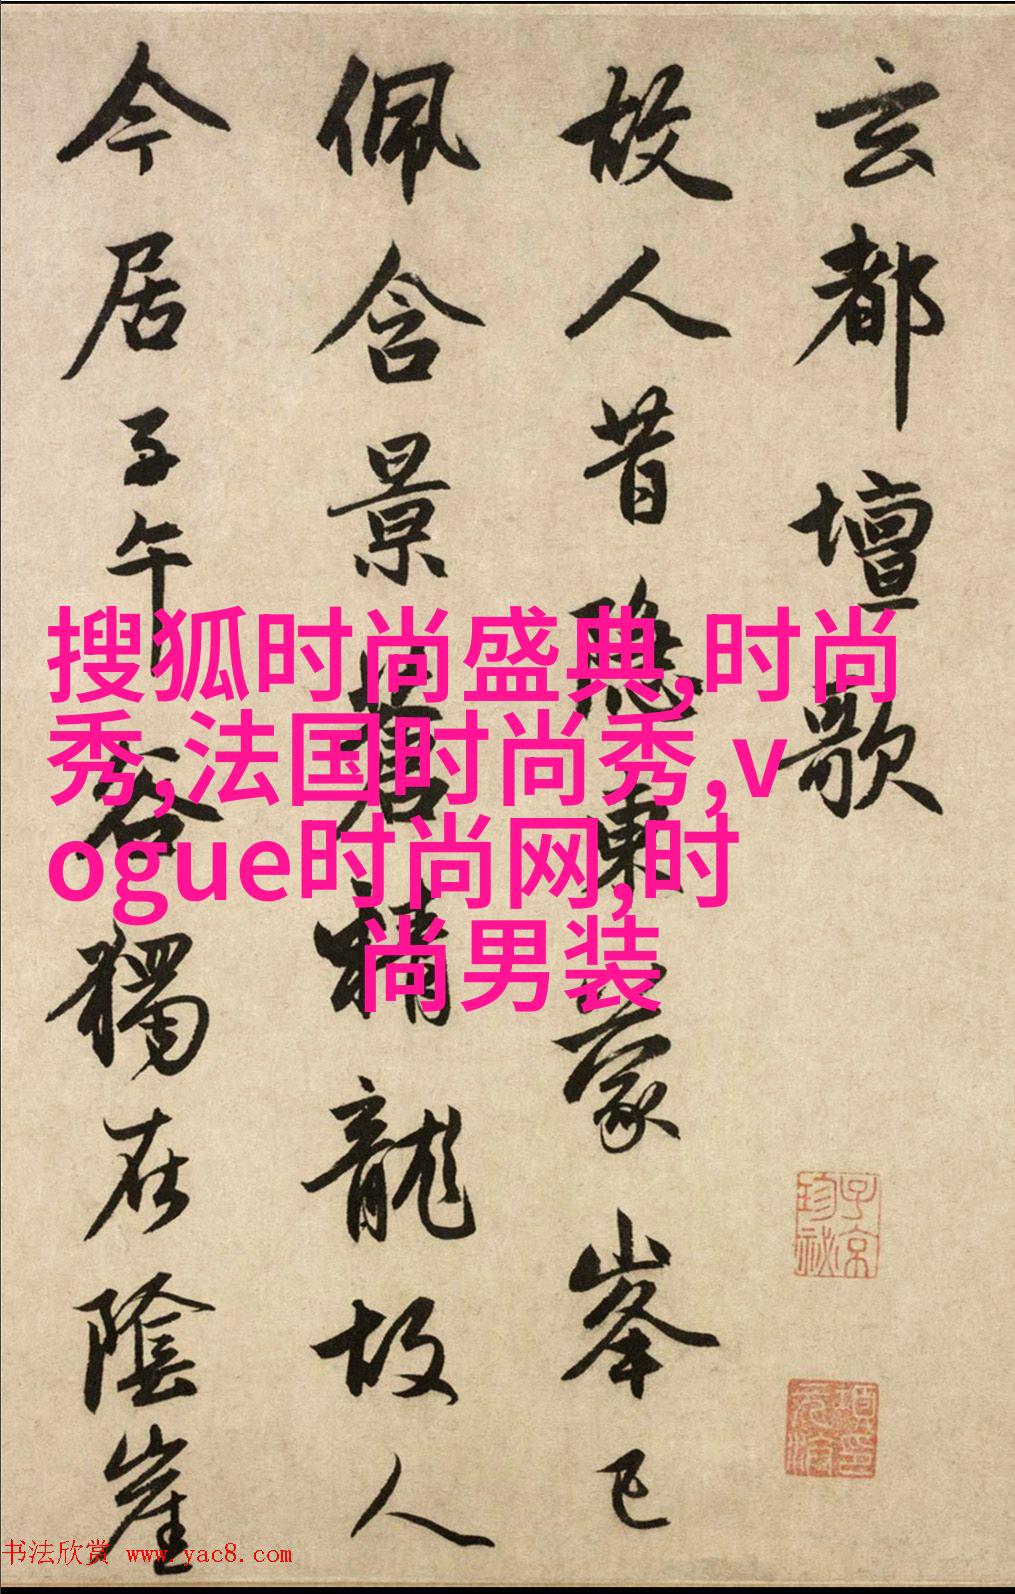 玄都壇歌
故人昔隱東蒙峯已
佩含景蒼精龍故人
今居子午谷獨在陰崖
搜狐时尚盛典,时尚
秀,法国时尚秀,v
ogue时尚网,时
尚男装
子京
珍祕
书法欣赏 www.yac8.com